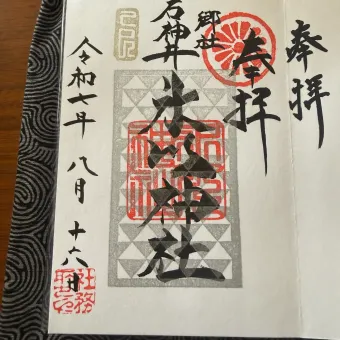 奉拝
奉拝
郷社
石神井
氷川神社
令和七年 八月 十六日
社務所印